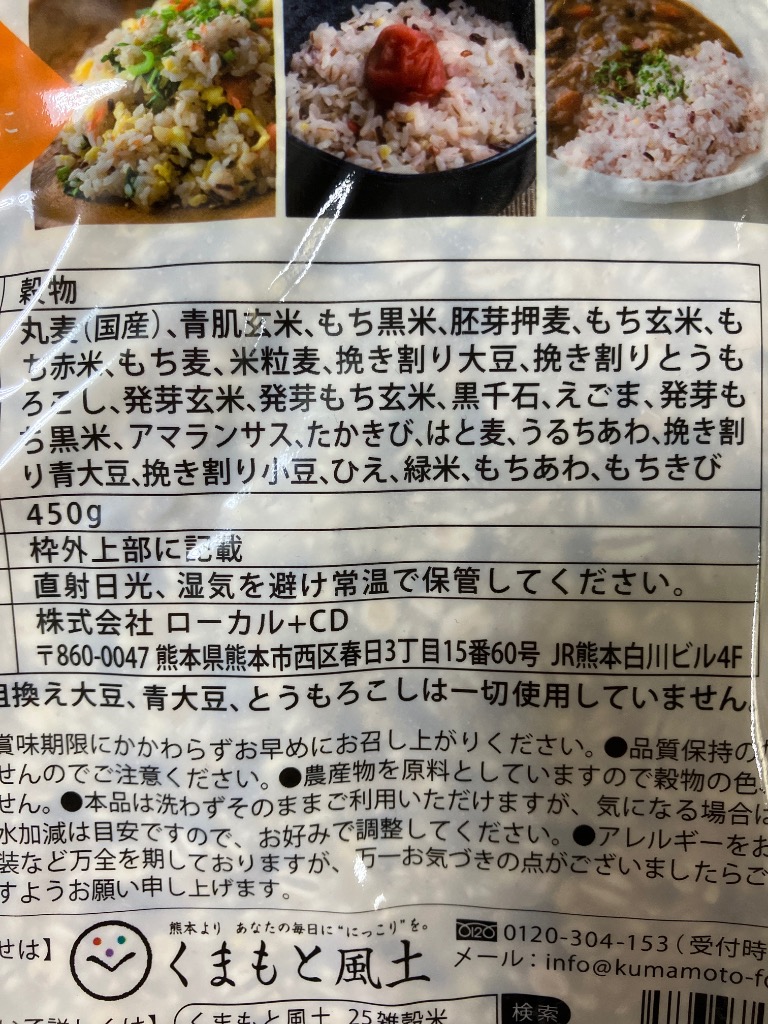 穀物
丸麦(国産)、青肌玄米、もち黒米、胚芽押麦、もち玄米、も
ち赤米、もち麦、米粒麦、挽き割り大豆、挽き割りとうも
ろこし、発芽玄米、発芽もち玄米、黒千石、えごま、発芽も
ち黒米、アマランサス、たかきび、はと麦、うるちあわ、挽き割
り青大豆、挽き割り小豆、ひえ、緑米、もちあわ、もちきび
450g
枠外上部に記載
直射日光、湿気を避け常温で保管してください。
株式会社 ローカル+CD
〒860-0047 熊本県熊本市西区春日3丁目15番60号 JR熊本白川ビル4F
換え大豆、青大豆、とうもろこしは一切使用していません。
賞味期限にかかわらずお早めにお召し上がりください。●品質保持の
せんのでご注意ください。●農産物を原料としていますので穀物の色
せん。●本品は洗わずそのままご利用いただけますが、気になる場合は
水加減は目安ですので、お好みで調整してください。●アレルギーをお
装など万全を期しておりますが、万一お気づきの点がございましたらご
すようお願い申し上げます。
熊本より あなたの毎日に"にっこり"を。
せは】
くまもと風土
0120-304-153(受付時
メール:info@kumamoto-fo
くまもと風土 25雑穀米
検索